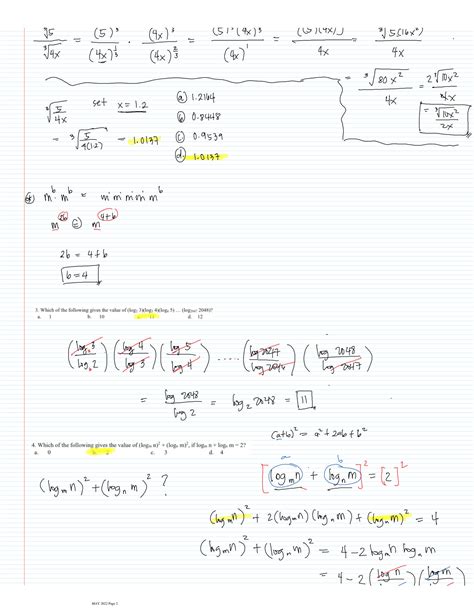 ∛5 / ∛(4x) = (5)^(1/3) / (4x)^(1/3) · (4x)^(2/3) / (4x)^(2/3) = (5)^(1/3) (4x)^(2/3) / (4x)^1 = / 4x = ∛(5(16x²)) / 4x
= ∛(80x²) / 4x = 2∛(10x²) / 4x
= ∛(10x²) / 2x
∛(5/4x) set x = 1.2
= ∛(5/4(1.2)) = 1.0137
ⓐ 1.2164
ⓑ 0.8448
ⓒ 0.9539
ⓓ 1.0137
m^b · m^b = m·m·m·m·m^b
m^(2b) = m^(4+b)
2b = 4+b
b = 4
3. Which of the following gives the value of (log₂ 3)(log₃ 4)(log₄ 5) … (log₂₀₄₇ 2048)?
a. 1 b. 10 c. 11 d. 12
(log 3 / log 2)(log 4 / log 3)(log 5 / log 4) ..... (log 2047 / log 2046)(log 2048 / log 2047)
= log 2048 / log 2 = log₂ 2048 = 11
(a+b)² = a² + 2ab + b²
4. Which of the following gives the value of (logₘ n)² + (logₙ m)², if logₘ n + logₙ m = 2?
a. 0 b. 2 c. 3 d. 4
(logₘ n)² + (logₙ m)² ?
a b
[logₘ n + logₙ m]² = [2]²
(logₘ n)² + 2(logₘ n)(logₙ m) + (logₙ m)² = 4
(logₘ n)² + (logₙ m)² = 4 − 2 logₘ n logₙ m
= 4 − 2 (log n)(log m)